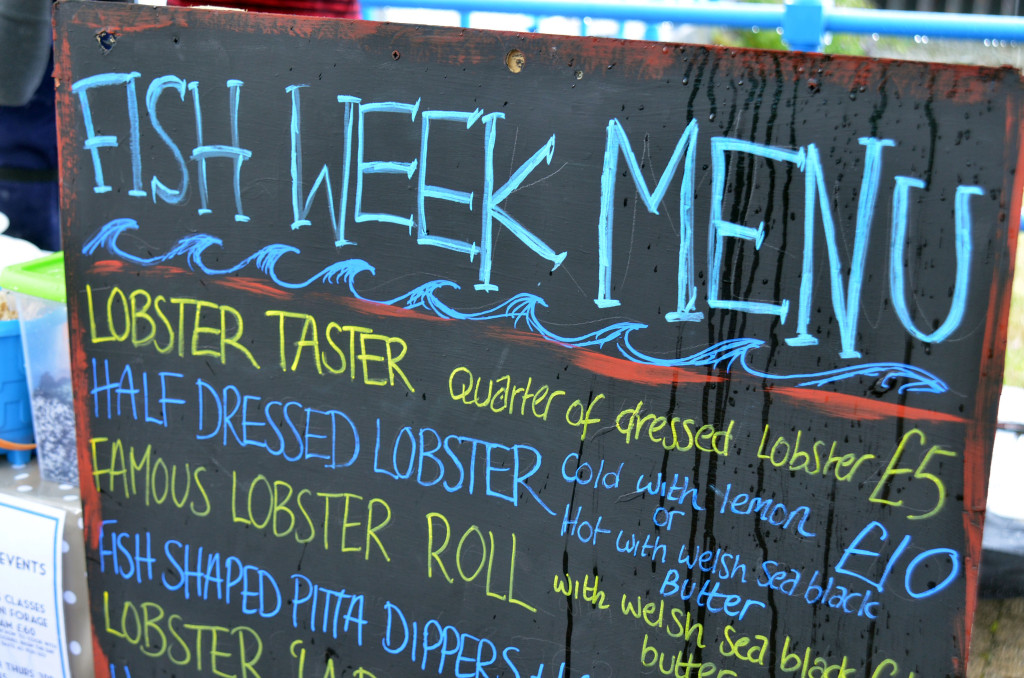 FISH WEEK MENU
LOBSTER TASTER Quarter of dressed Lobster £5
HALF DRESSED LOBSTER Cold with lemon
or
Hot with welsh sea black
Butter £10
FAMOUS LOBSTER ROLL with welsh sea black
butter
FISH SHAPED PITTA DIPPERS
LOBSTER
EVENTS
CLASSES
FORAGE
£60
THURS